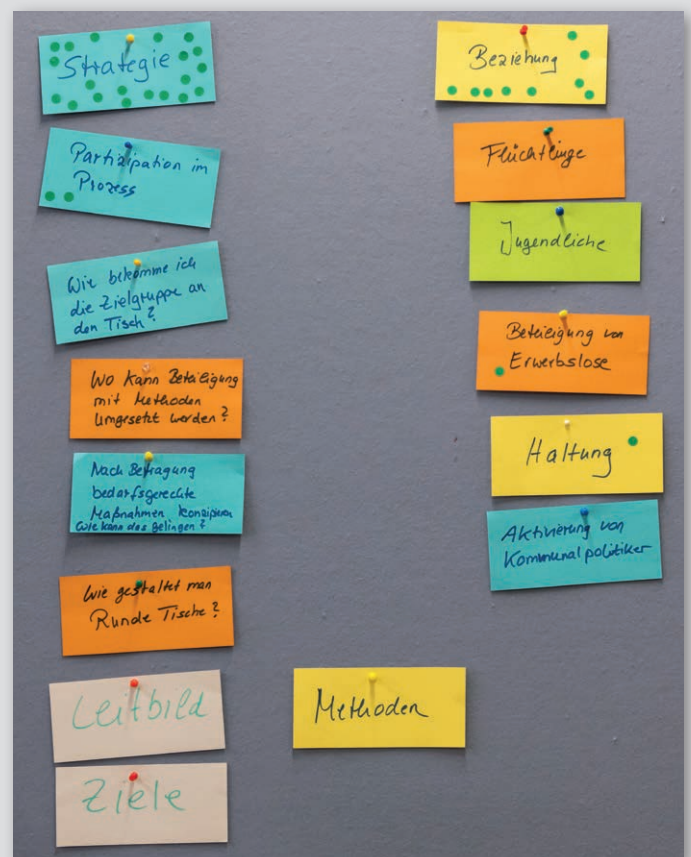 Strategie
Partizipation im
Prozess
Wie bekomme ich
die Zielgruppe an
den Tisch?
Wo kann Beteiligung
mit Methoden
umgesetzt werden?
Nach Befragung
bedarfsgerechte
Maßnahmen konzipieren
Wie kann das gelingen?
Wie gestaltet man
Runde Tische?
Leitbild
Ziele
Methoden
Beziehung
Flüchtlinge
Jugendliche
Beteiligung von
Erwerbslose
Haltung
Aktivierung von
Kommunalpolitiker